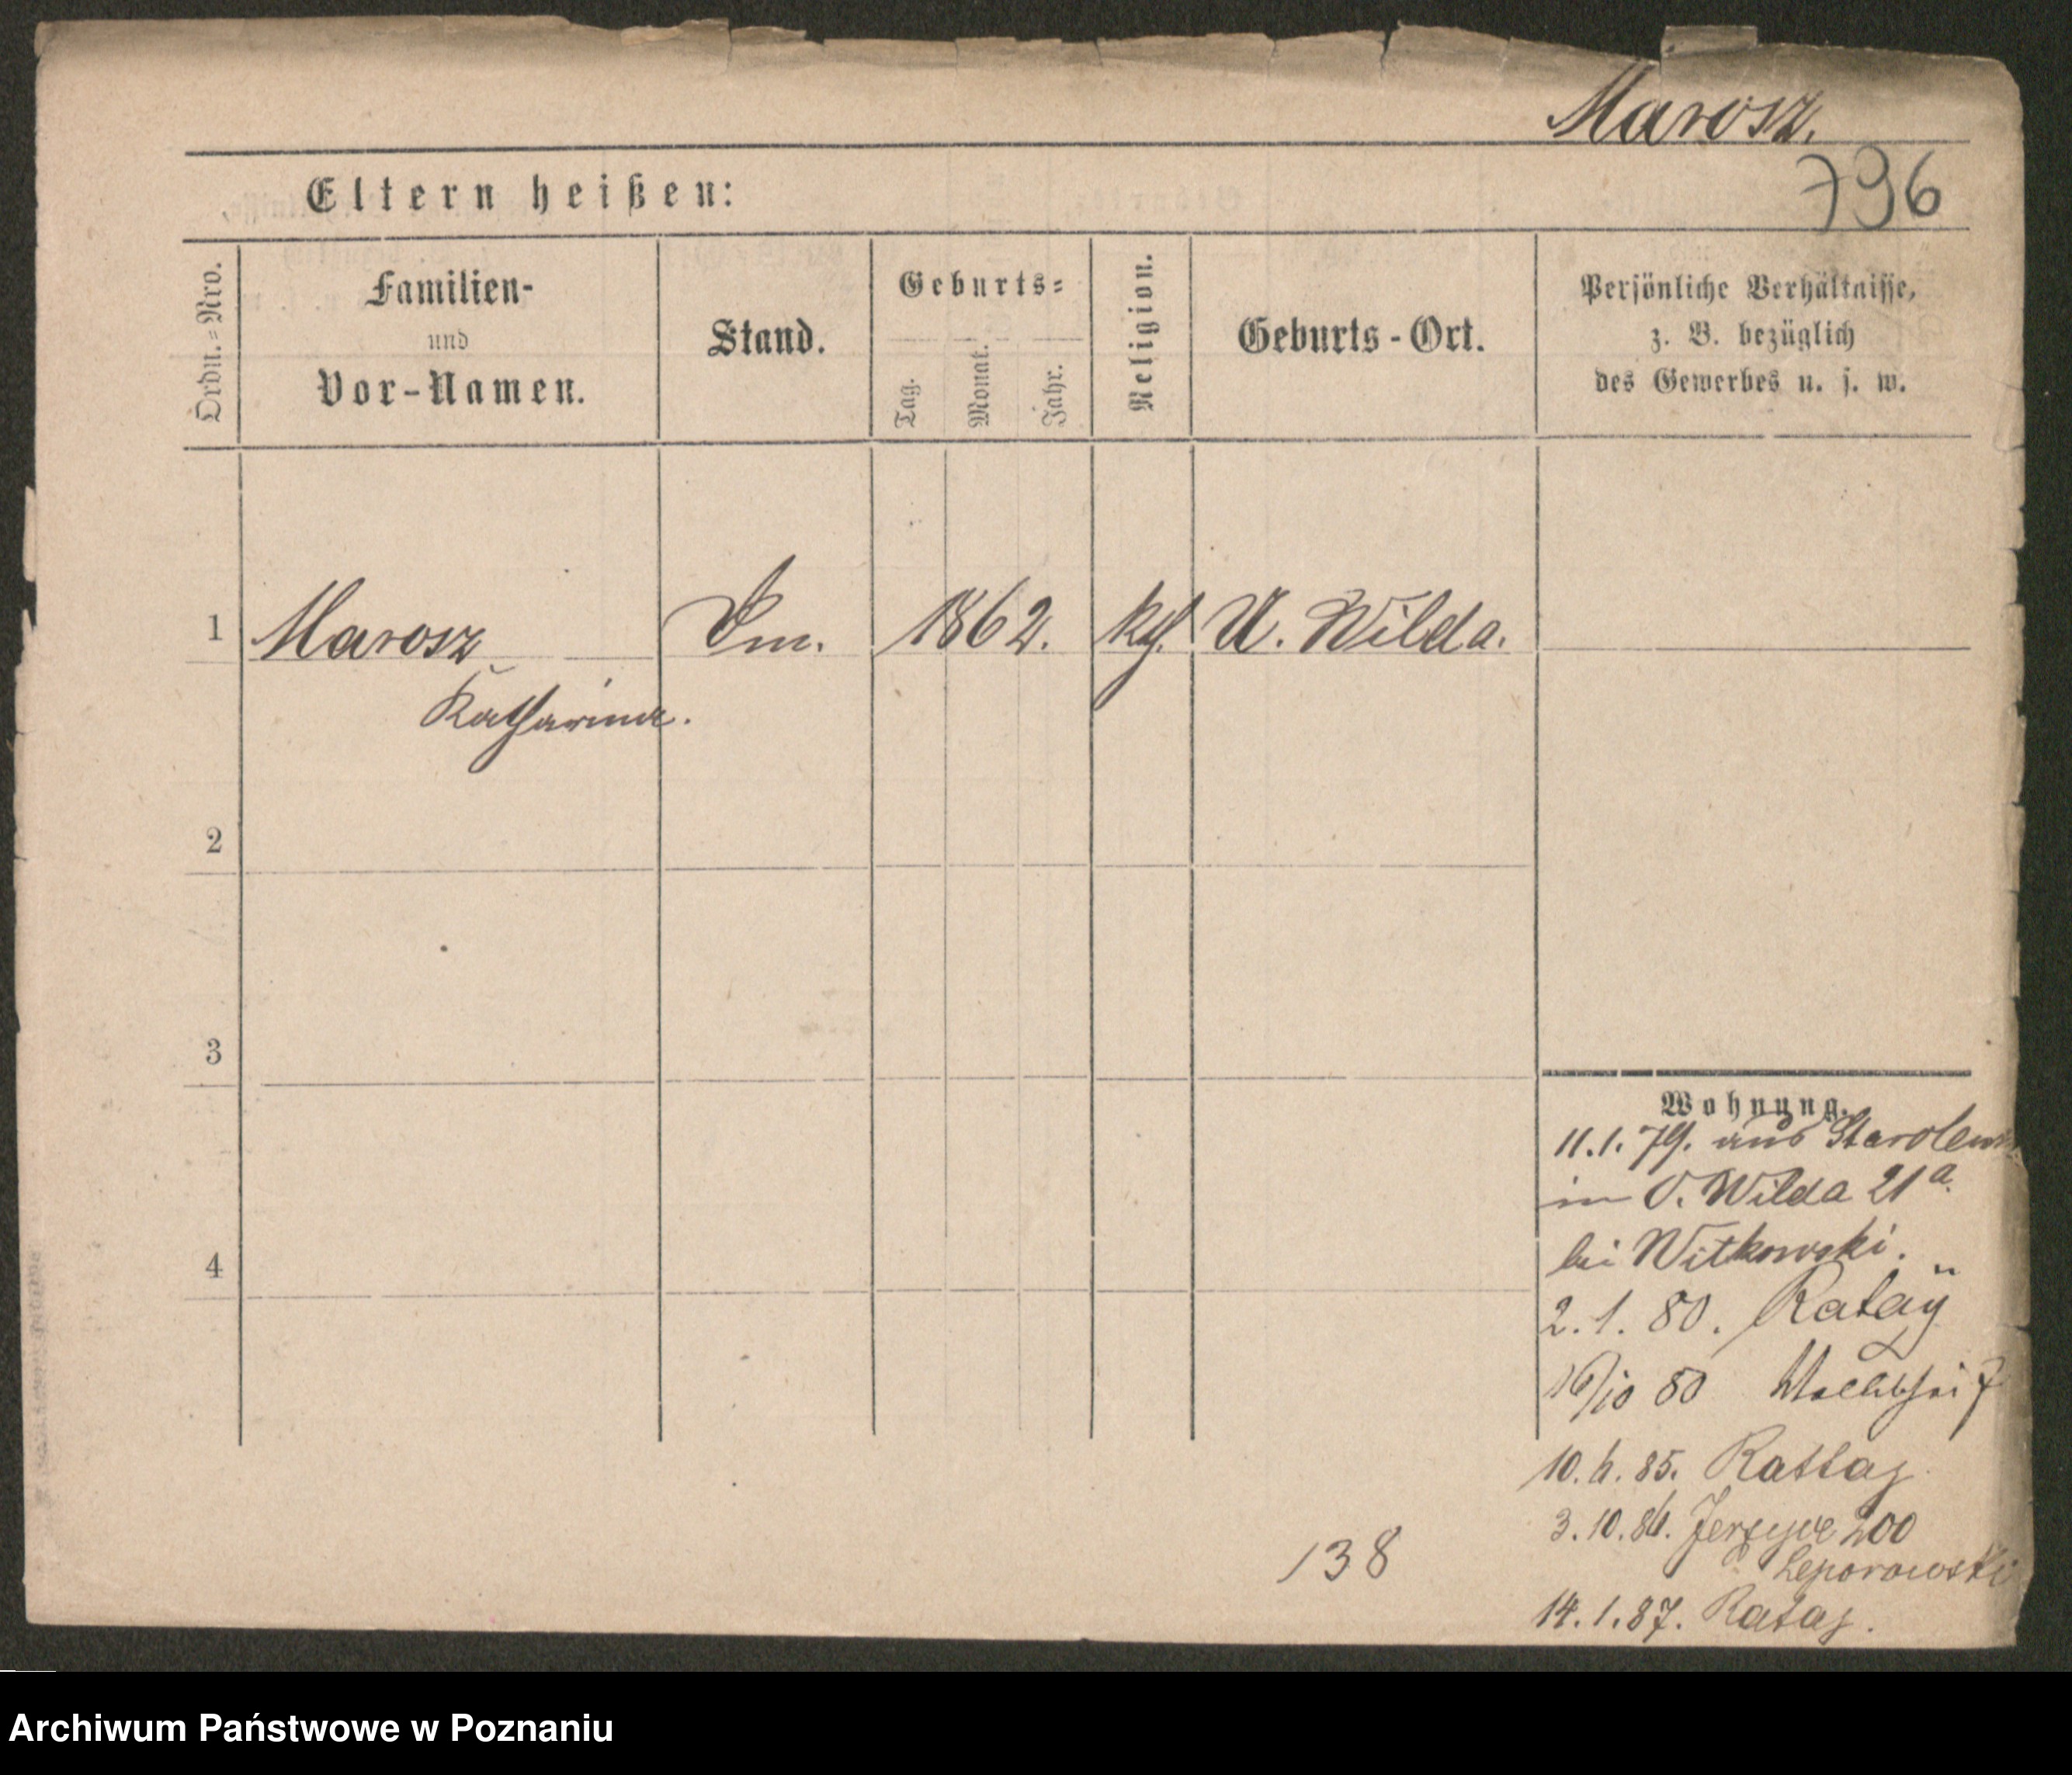 Marosz.
796
Eltern heißen:
Ordn.=Nro.
Familien-
und
Vor-Namen.
Stand.
Geburts=
Tag.
Monat.
Jahr.
Religion.
Geburts-Ort.
Persönliche Verhältnisse,
z. B. bezüglich
des Gewerbes u. s. w.
1 Marosz 1862. U. Wilda.
Katharina.
2
3
4
Wohnung.
11.1.79. aus
in O. Wilda 21a.
bei Witkowski.
2.1.80. Rataÿ
16/10 80
10.6.85. Rattay
3.10.86. Jerzyce 200
Leporowski
14.1.87. Ratay.
138
Archiwum Państwowe w Poznaniu